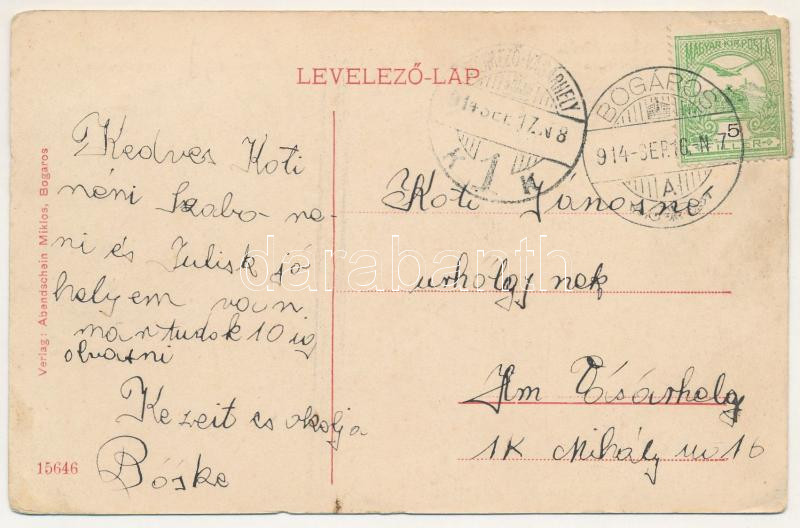 LEVELEZŐ-LAP
Kedves Koti
néni Szabo né
ni és Julisk jó
helyem van
mártudok 10 ig
olvasni
Kezeit csokolja
Böske
Koti Jánosne
urholgynek
Hm Vásárhely
1K Mihály u 16
MAGYAR KIR. POSTA
5
FILLÉR
BOGÁROS
914-SEP.16.N 7
A
914 SEP 17.N 8
K 1 K
Verlag: Abendschein Miklos, Bogaros
15646
darabanth